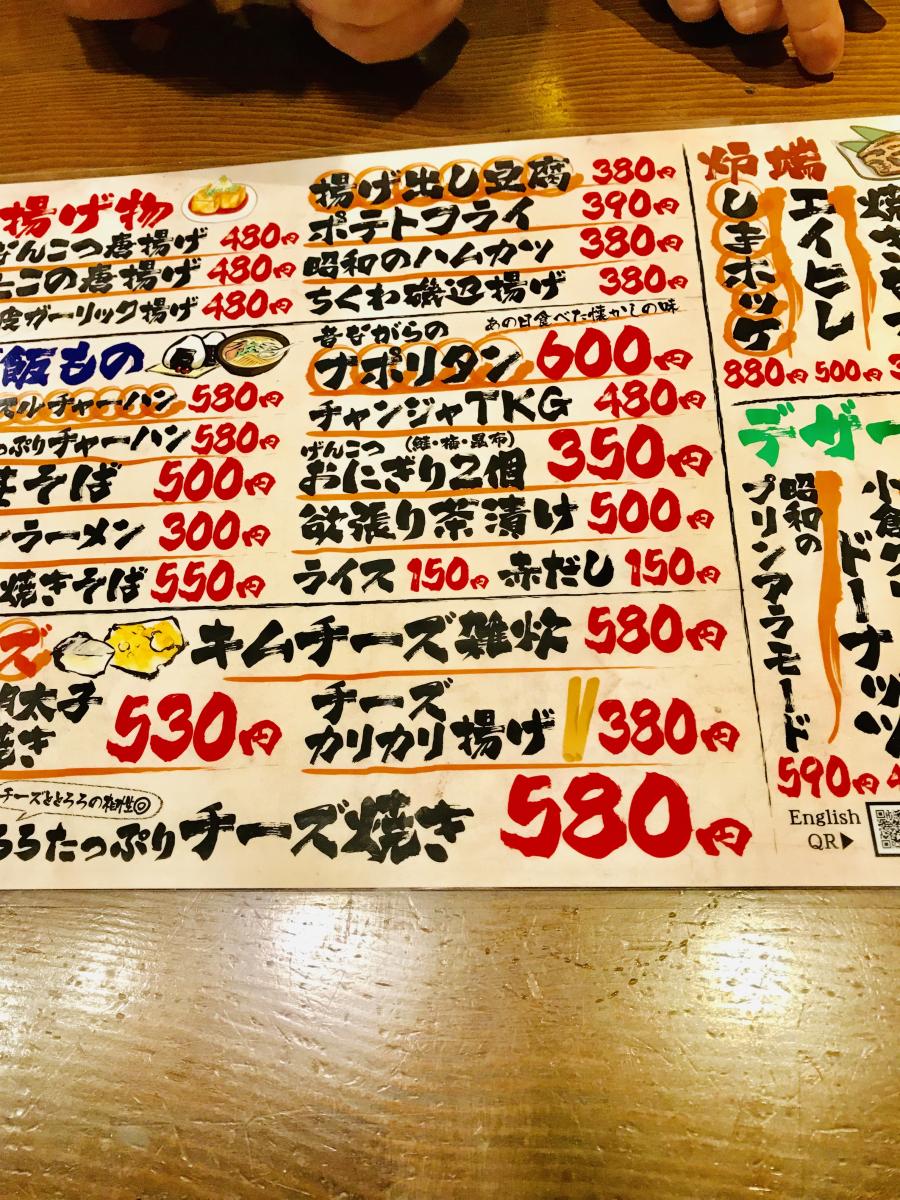 揚げ物
なんこつ唐揚げ 480円
たこの唐揚げ 480円
皮ガーリック揚げ 480円
揚げ出し豆腐 380円
ポテトフライ 390円
昭和のハムカツ 380円
ちくわ磯辺揚げ 380円
飯もの
ルチャーハン 580円
っぷりチャーハン 580円
そば 500円
ラーメン 300円
焼きそば 550円
あの日食べた懐かしの味
昔ながらの
ナポリタン 600円
チャンジャTKG 480円
げんこつ (鮭・梅・昆布)
おにぎり2個 350円
欲張り茶漬け 500円
ライス 150円 赤だし 150円
ズ
キムチーズ雑炊 580円
太子
焼き 530円
チーズ
カリカリ揚げ 380円
チーズととろろの相性◎
ろろたっぷりチーズ焼き 580円
炉端
しまホッケ
880円
エイヒレ
500円
焼き
デザー
昭和の
プリンアラモード
590円
小倉
ドーナッツ
English
QR▶